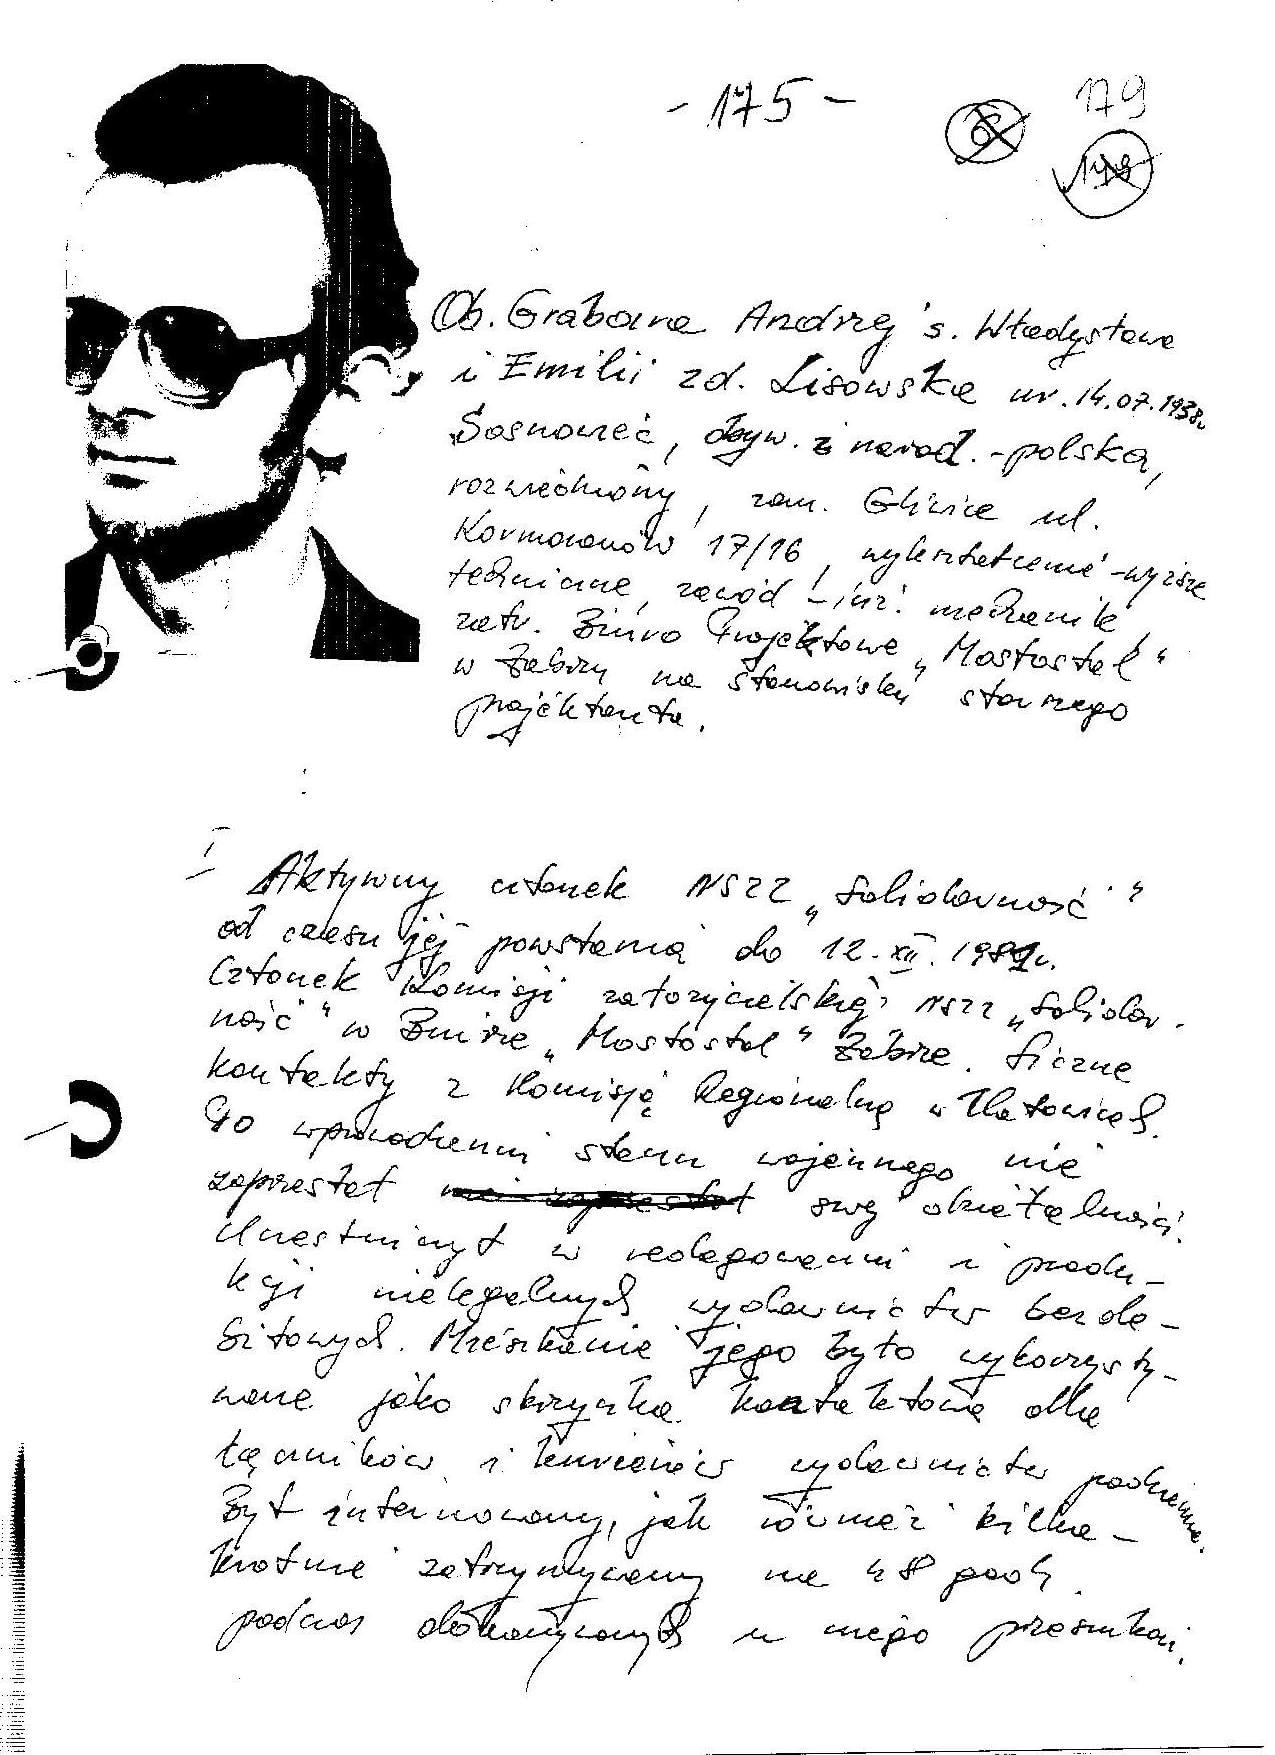 - 175 -
179
6
178
Ob. Grabowa Andrzej s. Władysława
i Emilii zd. Lisowska ur. 14.07.1938r.
Sosnowiec, obyw. i narod. - polska,
rozwiedziony, zam. Gliwice ul.
Kormoranów 17/16, wykształcenie - wyższe
techniczne, zawód - inż. mechanik
zatr. Biuro Projektowe „Mostostal"
w Zabrzu na stanowisku starszego
projektanta.
I
Aktywny członek NSZZ „Solidarność"
od czasu jej powstania do 12.XII.1981r.
Członek Komisji założycielskiej NSZZ „Solidar-
ność" w Biurze „Mostostal" Zabrze. Liczne
kontakty z Komisją Regionalną w Katowicach.
Po wprowadzeniu stanu wojennego nie
zaprzestał nie zaprzestał swej działalności.
Uczestniczył w redagowaniu i produ-
kcji nielegalnych wydawnictw bezde-
bitowych. Mieszkanie jego było wykorzysty-
wane jako skrzynka kontaktowa dla
łączników i kurierów wydawnictw podziemia.
Był internowany, jak również kilka-
krotnie zatrzymywany na 48 godz.
podczas dokonywanych u niego przeszukań.